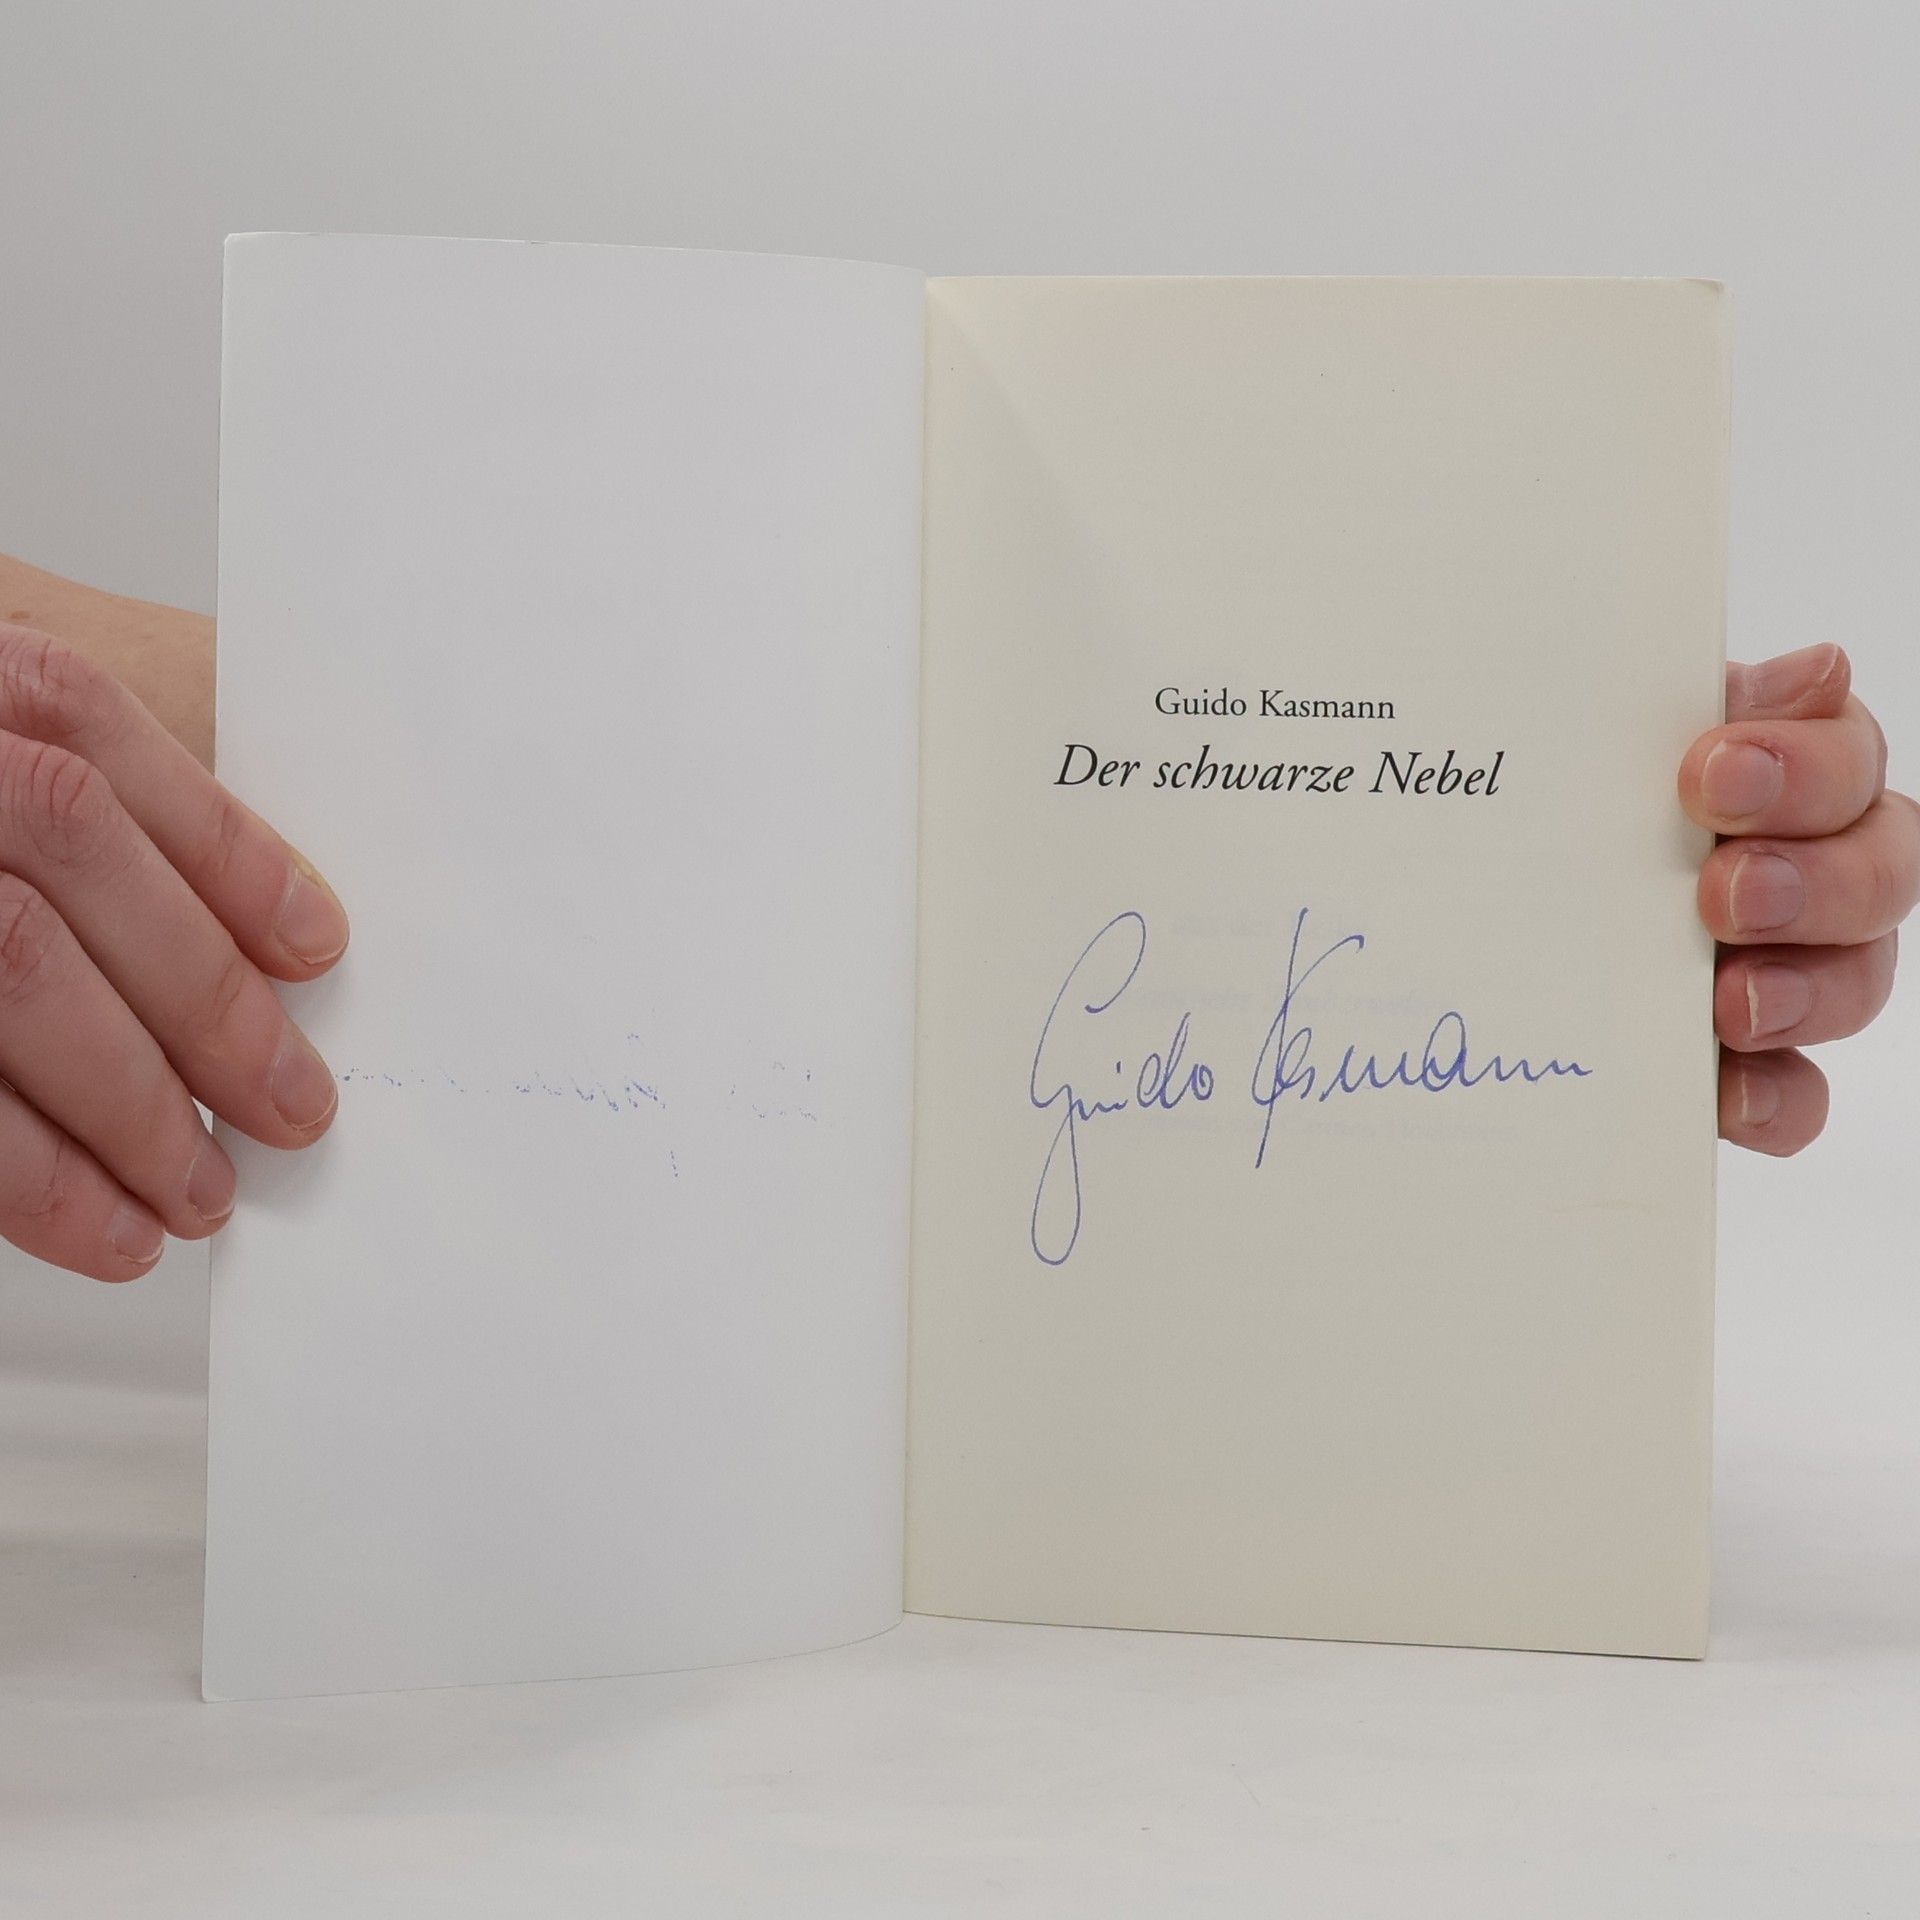 Guido Kasmann
Der schwarze Nebel
Guido Kasmann